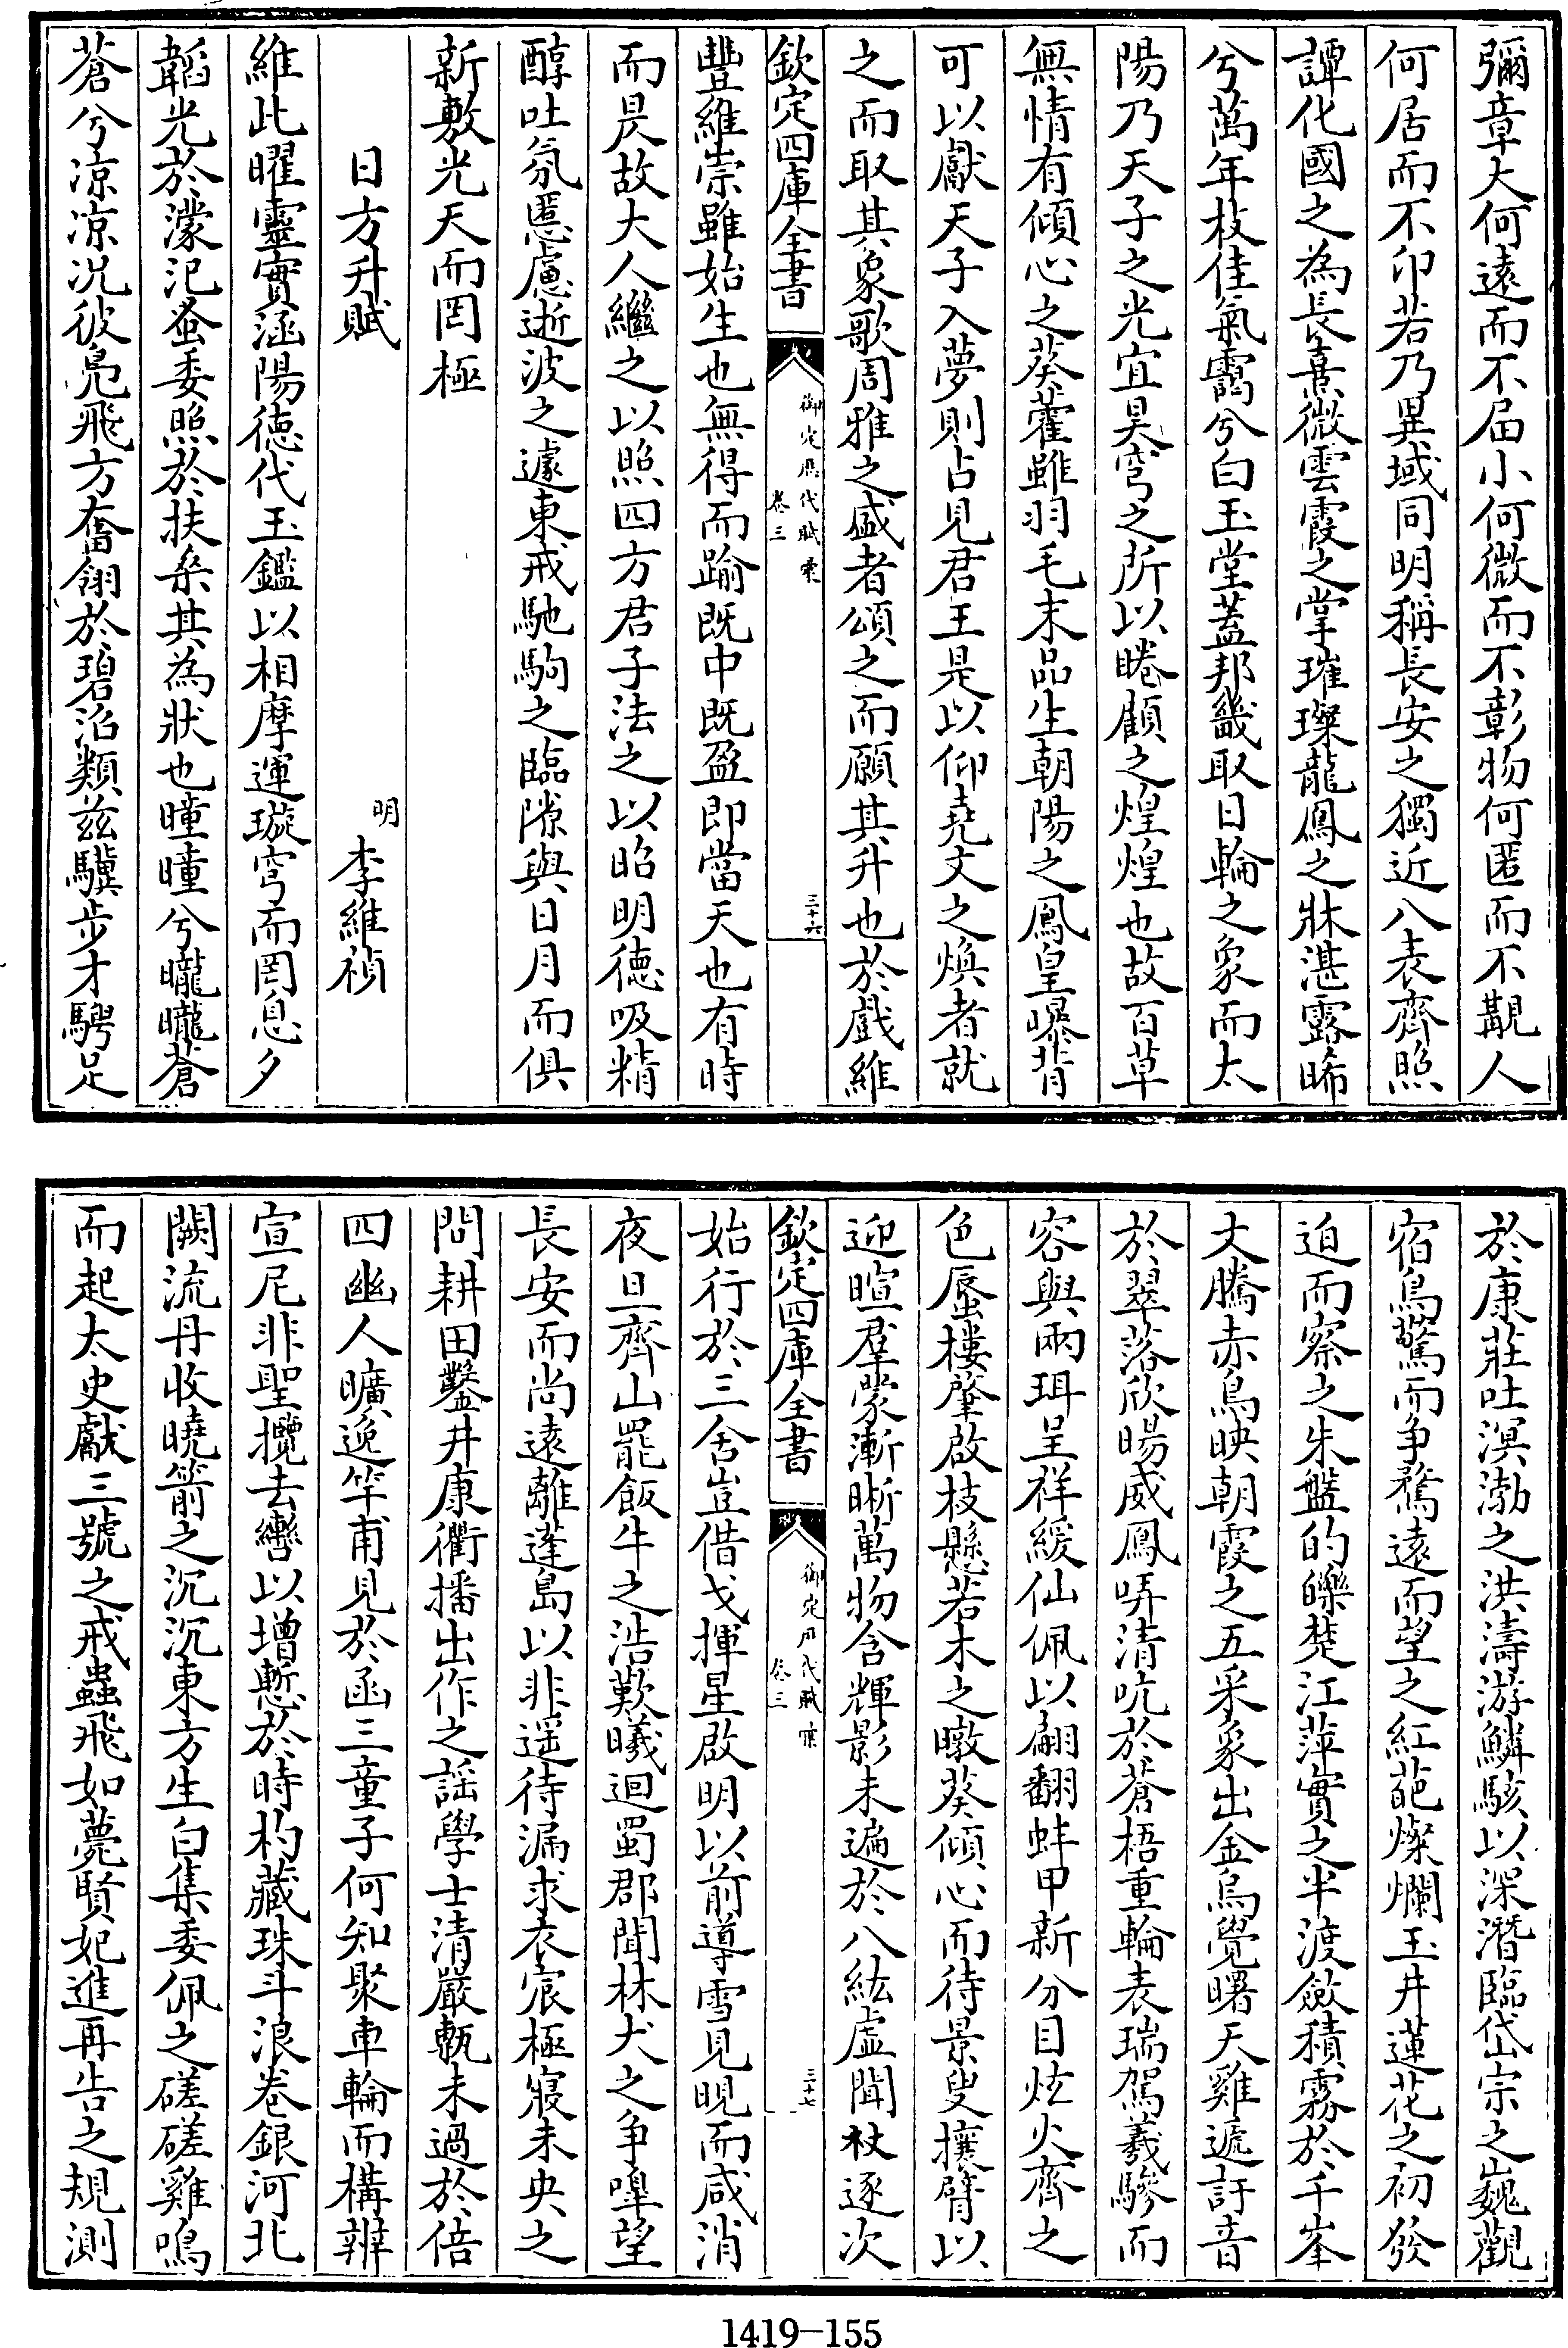 彌章大何遠而不届小何微而不彰物何匿而不覩人
何居而不卬若乃異域同明稱長安之獨近八表齊照
譚化國之為長熹微雲霞之掌璀璨龍鳳之牀湛露晞
兮萬年枝佳氣靄兮白玉堂蓋邦畿取日輪之象而太
陽乃天子之光宜昊穹之所以睠顧之煌煌也故百草
無情有傾心之葵藿雖羽毛末品生朝陽之鳳皇曝背
可以獻天子入夢則占見君王是以仰堯文之煥者就
之而取其象歌周雅之盛者頌之而願其升也於戲維
欽定四庫全書
御定歷代賦彙
卷三
三十六
豐維崇雖始生也無得而踰既中既盈即當天也有時
而昃故大人繼之以照四方君子法之以昭明德吸精
醇吐氛慝慮逝波之遽東戒馳駒之臨隙與日月而俱
新敷光天而罔極
日方升賦
明 李維禎
維此曜靈實涵陽德代玉鑑以相摩運璇穹而罔息夕
韜光於濛汜蚤委照於扶桑其為狀也曈曈兮曨曨蒼
蒼兮凉凉况彼鳧飛方奮翎於碧沿類兹驥步才騁足
於康莊吐溟渤之洪濤游鱗駭以深潛臨岱宗之巍觀
宿鳥驚而争騖遠而望之紅葩燦爛玉井蓮花之初發
迫而察之朱盤的皪楚江萍實之半渡斂積霧於千峯
丈騰赤鳥映朝霞之五采象出金烏覺曙天雞遞訏音
於翠落欣暘威鳳哢清吭於蒼梧重輪表瑞駕羲驂而
容與兩珥呈祥緩仙佩以翩翻蚌甲新分目炫火齊之
色蜃樓肇啟枝懸若木之暾葵傾心而待景叟攘臂以
迎暄羣蒙漸晰萬物含輝影未遍於八紘虛聞杖逐次
欽定四庫全書
御定歷代賦彙
卷三
三十七
始行於三舍豈借戈揮星啟明以前導雪見晛而咸消
夜旦齊山罷飯牛之浩歎曦迴蜀郡聞林犬之争嘷望
長安而尚遠離蓬島以非遥待漏求衣宸極寢未央之
問耕田鑿井康衢播出作之謡學士清嚴甎未過於倍
四幽人曠逸竿甫見於函三童子何知聚車輪而構辨
宣尼非聖攬去轡以增慙於時杓藏珠斗浪卷銀河北
闕流丹收曉箭之沉沉東方生白集委佩之磋磋雞鳴
而起太史獻三號之戒蟲飛如薨賢妃進再告之規測
1419-155